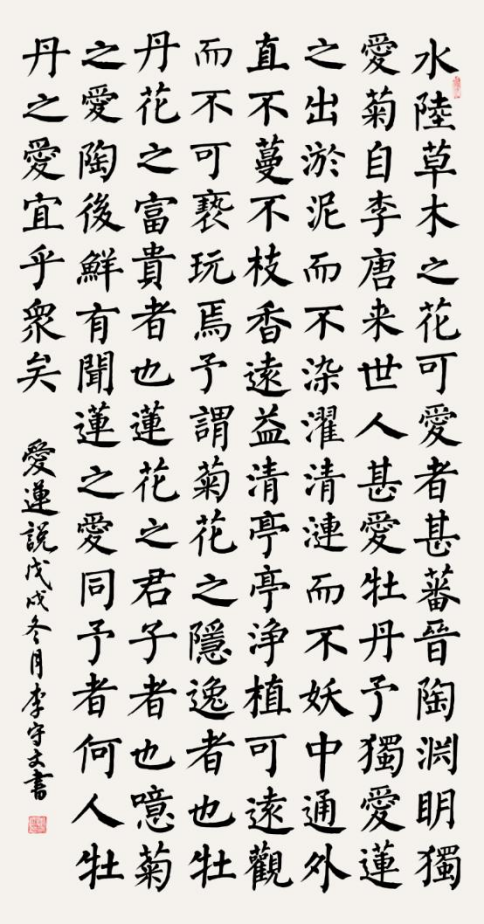 水陸草木之花可愛者甚蕃晉陶渊明獨
愛菊自李唐来世人甚愛牡丹予獨愛蓮
之出淤泥而不染濯清漣而不妖中通外
直不蔓不枝香遠益清亭亭浄植可遠觀
而不可褻玩焉予謂菊花之隱逸者也牡
丹花之富貴者也蓮花之君子者也噫菊
之愛陶後鮮有聞蓮之愛同予者何人牡
丹之愛宜乎衆矣
愛蓮説戊戌冬月李守文書